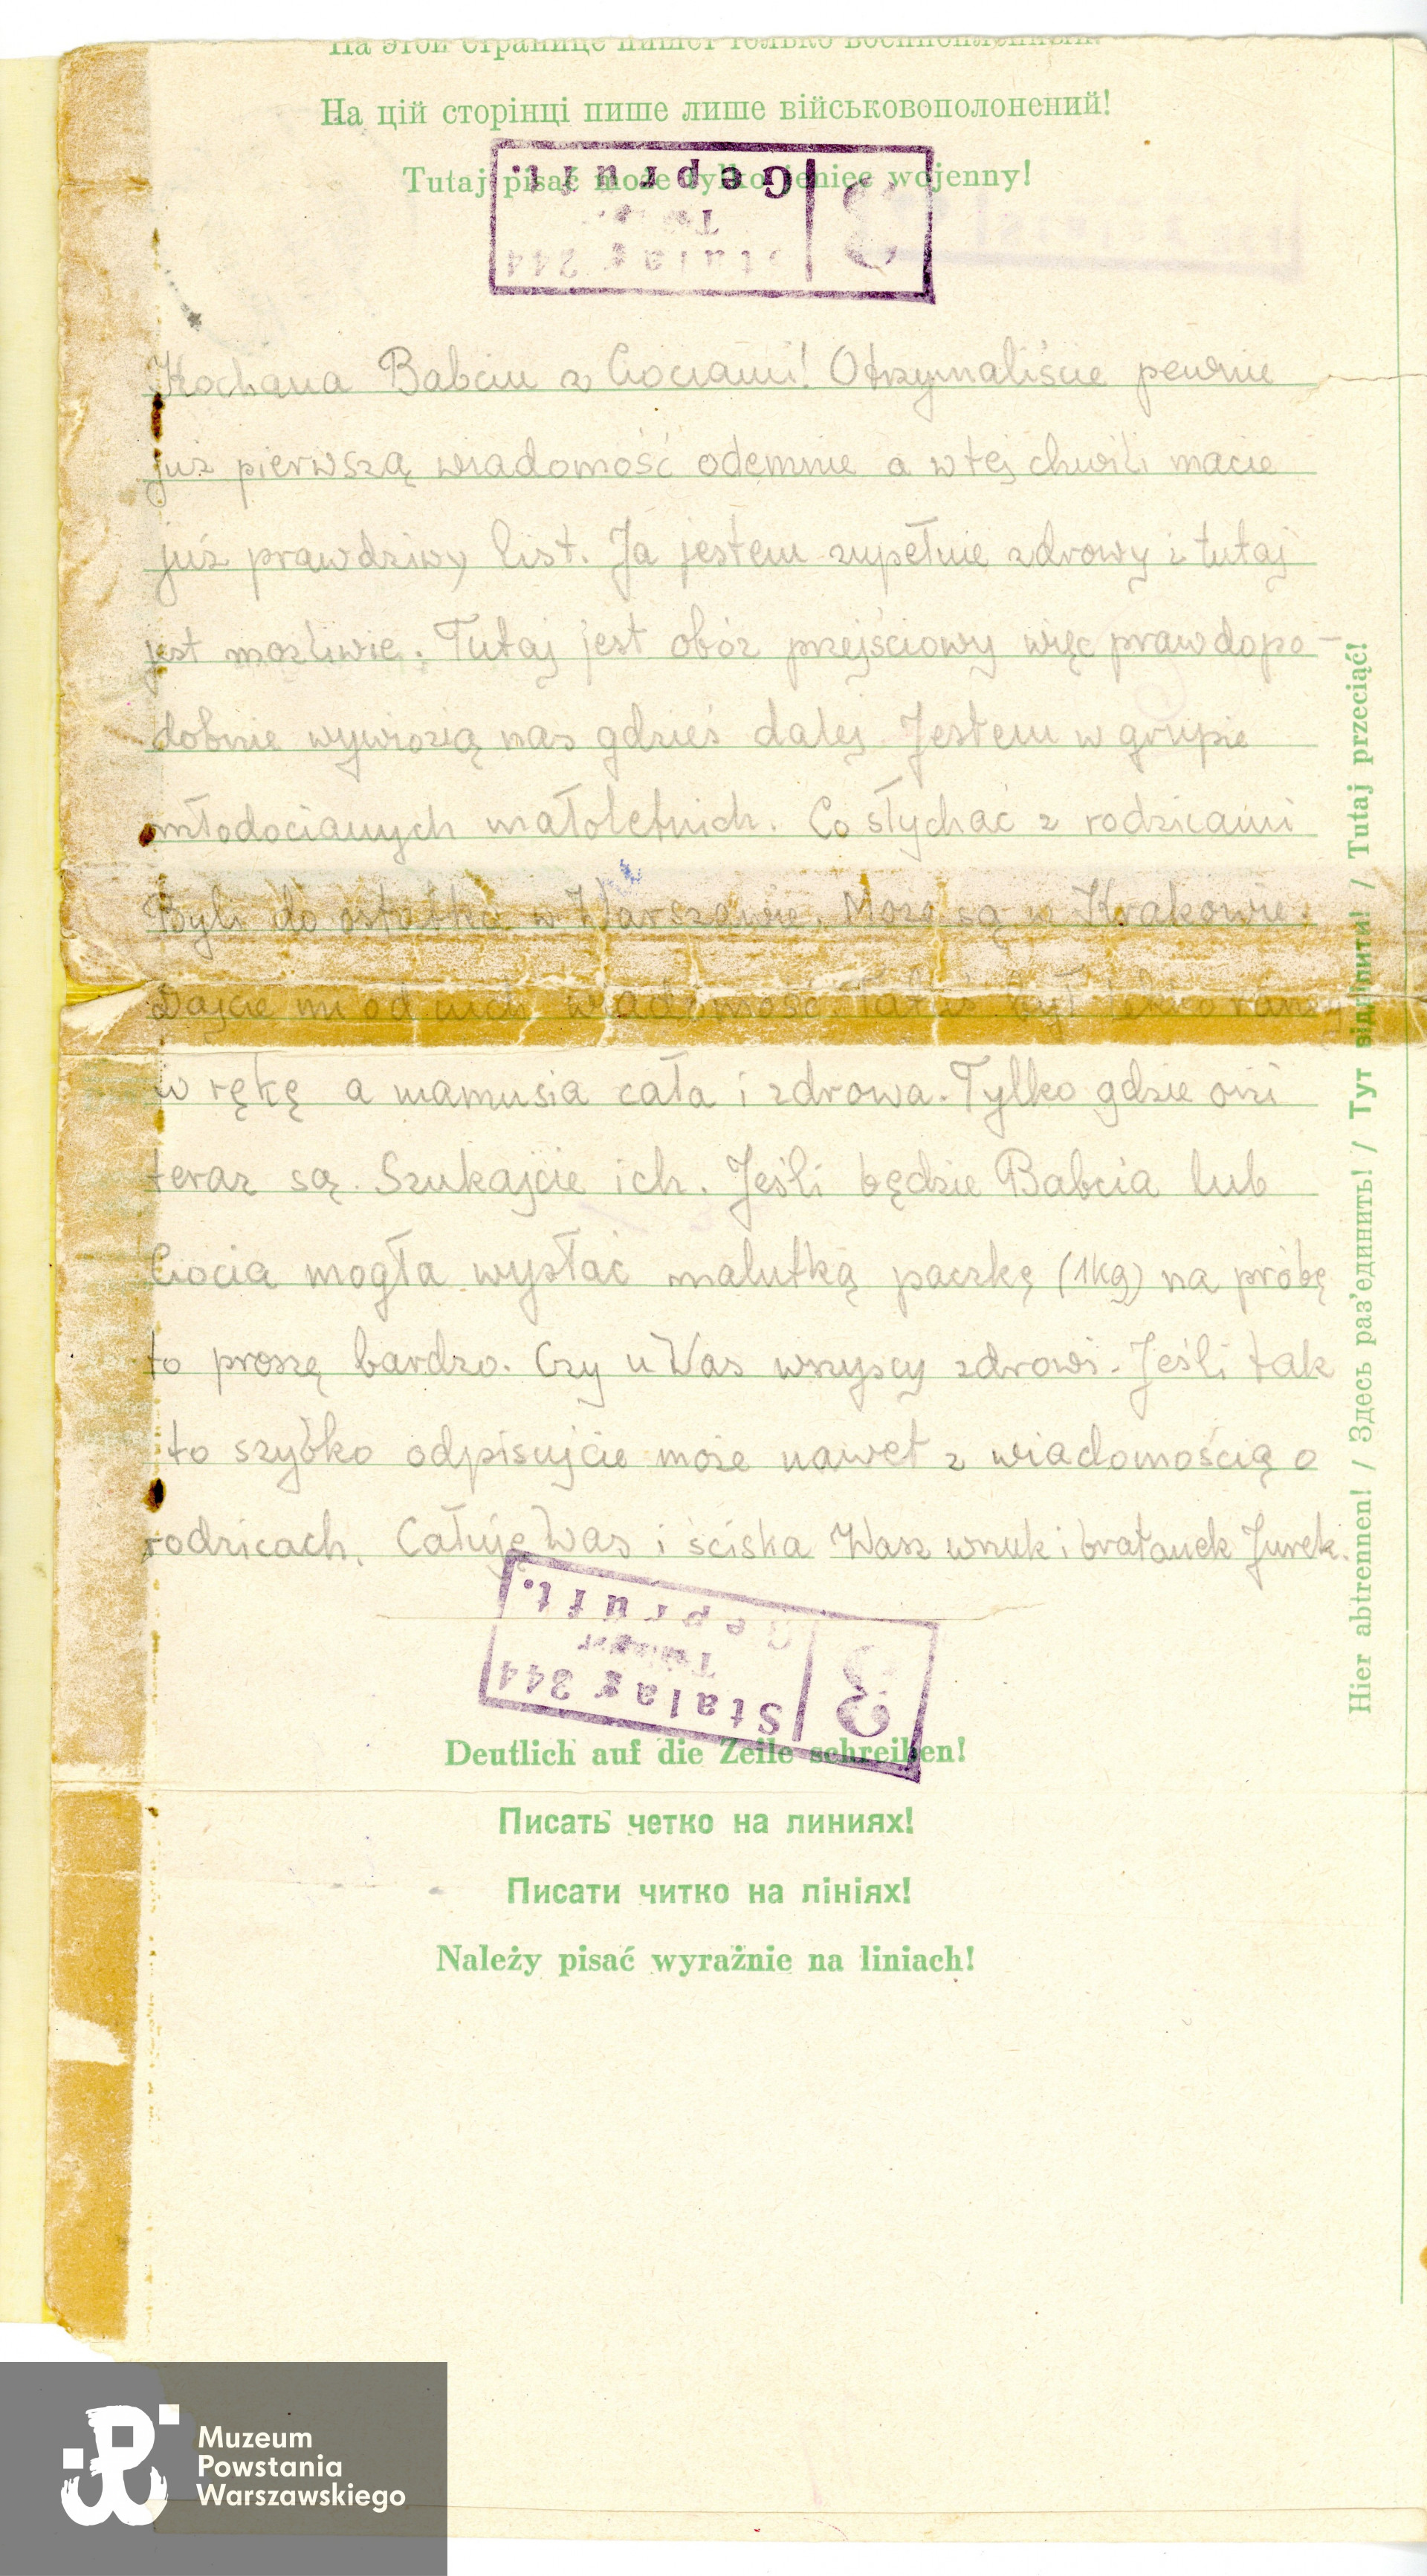 На этой странице пишет только военнопленный!
На цій сторінці пише лише військовополонений!
Tutaj pisać może tylko jeniec wojenny!
Geprüft.
Stalag 344
3
Kochana Babciu z Ciociami! Otrzymaliście pewnie
już pierwszą wiadomość odemnie a w tej chwili macie
już prawdziwy list. Ja jestem zupełnie zdrowy i tutaj
jest możliwie. Tutaj jest obóz przejściowy więc prawdopo-
dobnie wywiozą nas gdzieś dalej. Jestem w grupie
młodocianych małoletnich. Co słychać z rodzicami
Byli do ostatka w Warszawie. Może są w Krakowie.
Dajcie mi od nich wiadomość. Tatuś był lekko ranny
w rękę a mamusia cała i zdrowa. Tylko gdzie oni
teraz są. Szukajcie ich. Jeśli będzie Babcia lub
Ciocia mogła wysłać malutką paczkę (1kg) na próbę
to proszę bardzo. Czy u Was wszyscy zdrowi. Jeśli tak
to szybko odpisujcie może nawet z wiadomością o
rodzicach. Całuję Was i ściska Wasz wnuk i bratanek Jurek.
Geprüft.
Stalag 344
3
Deutlich auf die Zeile schreiben!
Писать четко на линиях!
Писати читко на лініях!
Należy pisać wyraźnie na liniach!
Hier abtrennen! / Здесь раз’единить! / Тут відділити! / Tutaj przeciąć!
Muzeum
Powstania
Warszawskiego